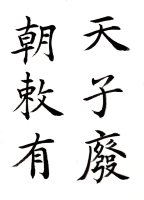 天子廢
朝敕有